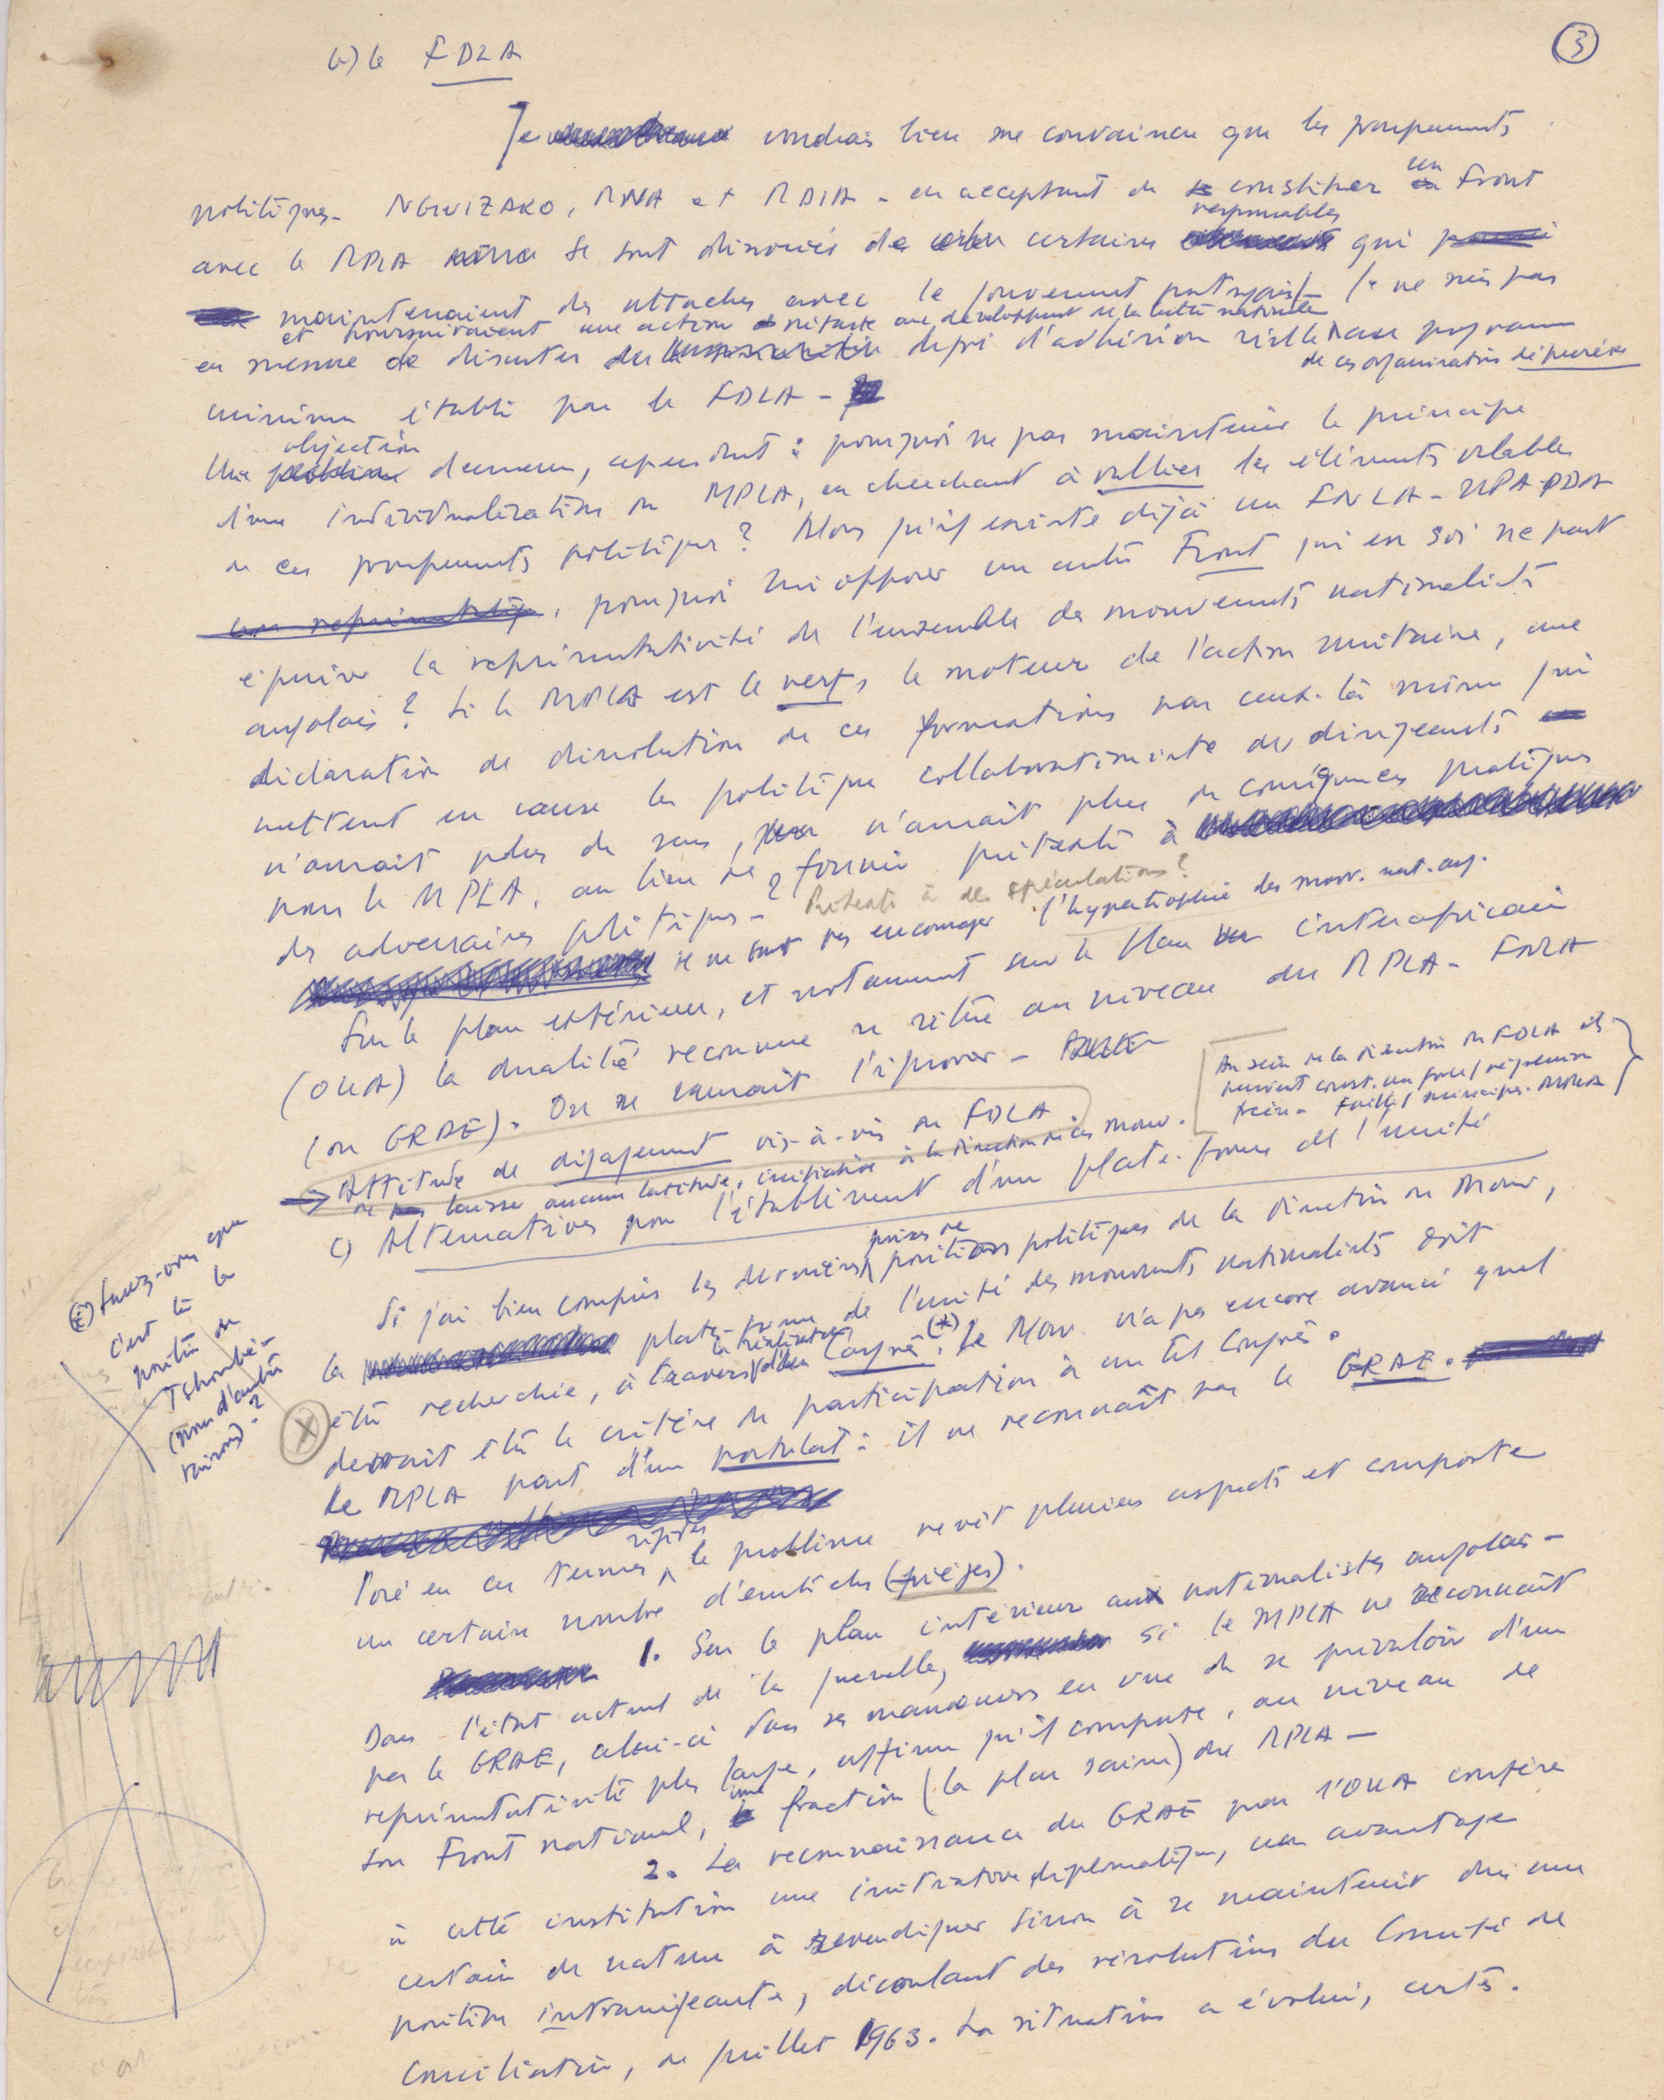 3
b) le FDLA
Je voudrais bien me convaincre que les groupements
politiques - NGWIZAKO, MNA et MDIA - en acceptant de constituer un Front
responsables
avec le MPLA se sont dissociés de certains qui
maintenaient des attaches avec le gouvernement portugais. Je ne suis pas
et poursuivaient une action néfaste au développement de la lutte nationale
en mesure de discuter du degré d'adhésion réelle au programme
de ces organisations
minimum établi par le FDLA -
objection
Une demeure, cependant : pourquoi ne pas maintenir le principe
d'une individualisation du MPLA, en cherchant à rallier les éléments valables
de ces groupements politiques ? Alors qu'il existe déjà un FNLA - UPA-PDA
, pourquoi lui opposer un autre Front qui en soi ne peut
épuiser la représentativité de l'ensemble des mouvements nationalistes
angolais ? Si le MPLA est le nerf, le moteur de l'action unitaire, une
déclaration de dissolution de ces formations par ceux-là même qui
mettent en cause la politique collaborationniste des dirigeants
n'aurait plus de sens, n'aurait plus de conséquences pratiques
pour le MPLA, au lieu de fournir prétexte à
des adversaires politiques - ? Prétexte à des spéculations ?
je ne veux pas encourager l'hypertrophie des mouv. nat. ang.
Sur le plan extérieur, et notamment sur le plan interafricain
(OUA) la dualité reconnue se situe au niveau du MPLA - FNLA
(ou GRAE). On ne saurait l'ignorer -
Au sein de la direction du FDLA ils
peuvent const. une force / répression
frein -
→ Attitude de dégagement vis-à-vis du FDLA
ne laisse aucune latitude, initiative à la direction de ces mouv.
c) Alternatives pour l'établissement d'une plate-forme de l'unité
prises de
Si j'ai bien compris les dernières positions politiques de la direction du Mouv,
la plate-forme de l'unité des mouvements nationalistes doit
la réalisation
être recherchée, à travers d'un Congrès (*). Le Mouv. n'a pas encore avancé quel
devrait être le critère de participation à un tel Congrès.
(*) Savez-vous que
c'est là la
position de
Tchombé -
(pour d'autres
raisons) ?
Le MPLA part d'un postulat : il ne reconnaît pas le GRAE.
rigides
Posé en ces termes, le problème revêt plusieurs aspects et comporte
un certain nombre d'embûches (pièges).
1. Sur le plan intérieur aux nationalistes angolais -
Dans l'état actuel de la querelle, si le MPLA ne reconnaît
pas le GRAE, celui-ci dans ses manœuvres en vue de se prévaloir d'une
représentativité plus large, affirme qu'il comporte, au niveau de
son Front national, une fraction (la plus saine) du MPLA -
2. La reconnaissance du GRAE par l'OUA confère
à cette institution une initiative diplomatique, un avantage
certain de nature à revendiquer sinon à se maintenir dans une
position intransigeante, découlant des résolutions du Comité de
Conciliation, de juillet 1963. La situation a évolué, certes.